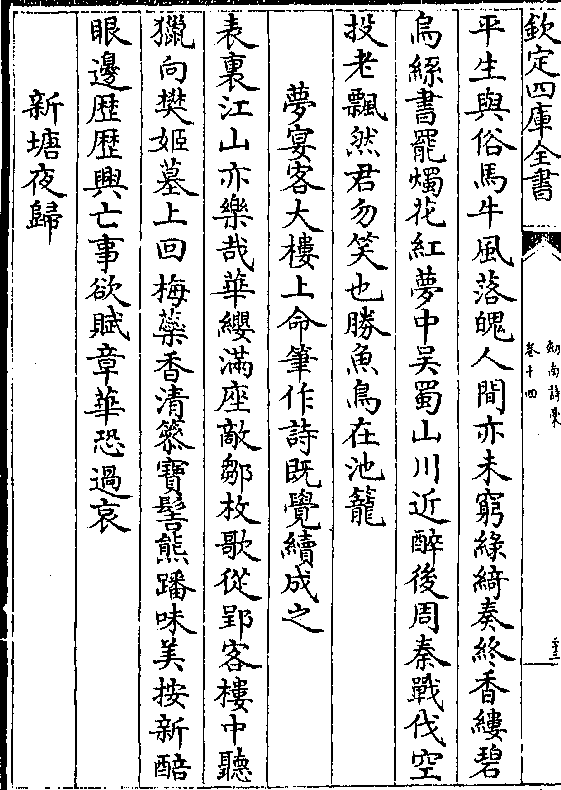 欽定四庫全書
劒南詩藁
卷十四
平生與俗馬牛風落魄人間亦未窮緑綺奏終香縷碧
烏絲書罷燭花紅夢中吴蜀山川近醉後周秦戰伐空
投老飄然君勿笑也勝魚鳥在池籠
夢宴客大樓上命筆作詩既覺續成之
表裏江山亦樂哉華纓滿座敵鄒枚歌從郢客樓中聽
獵向樊姬墓上回梅蘂香清篸寶髻熊蹯味美按新醅
眼邊歴歴興亡事欲賦章華恐過哀
新塘夜歸